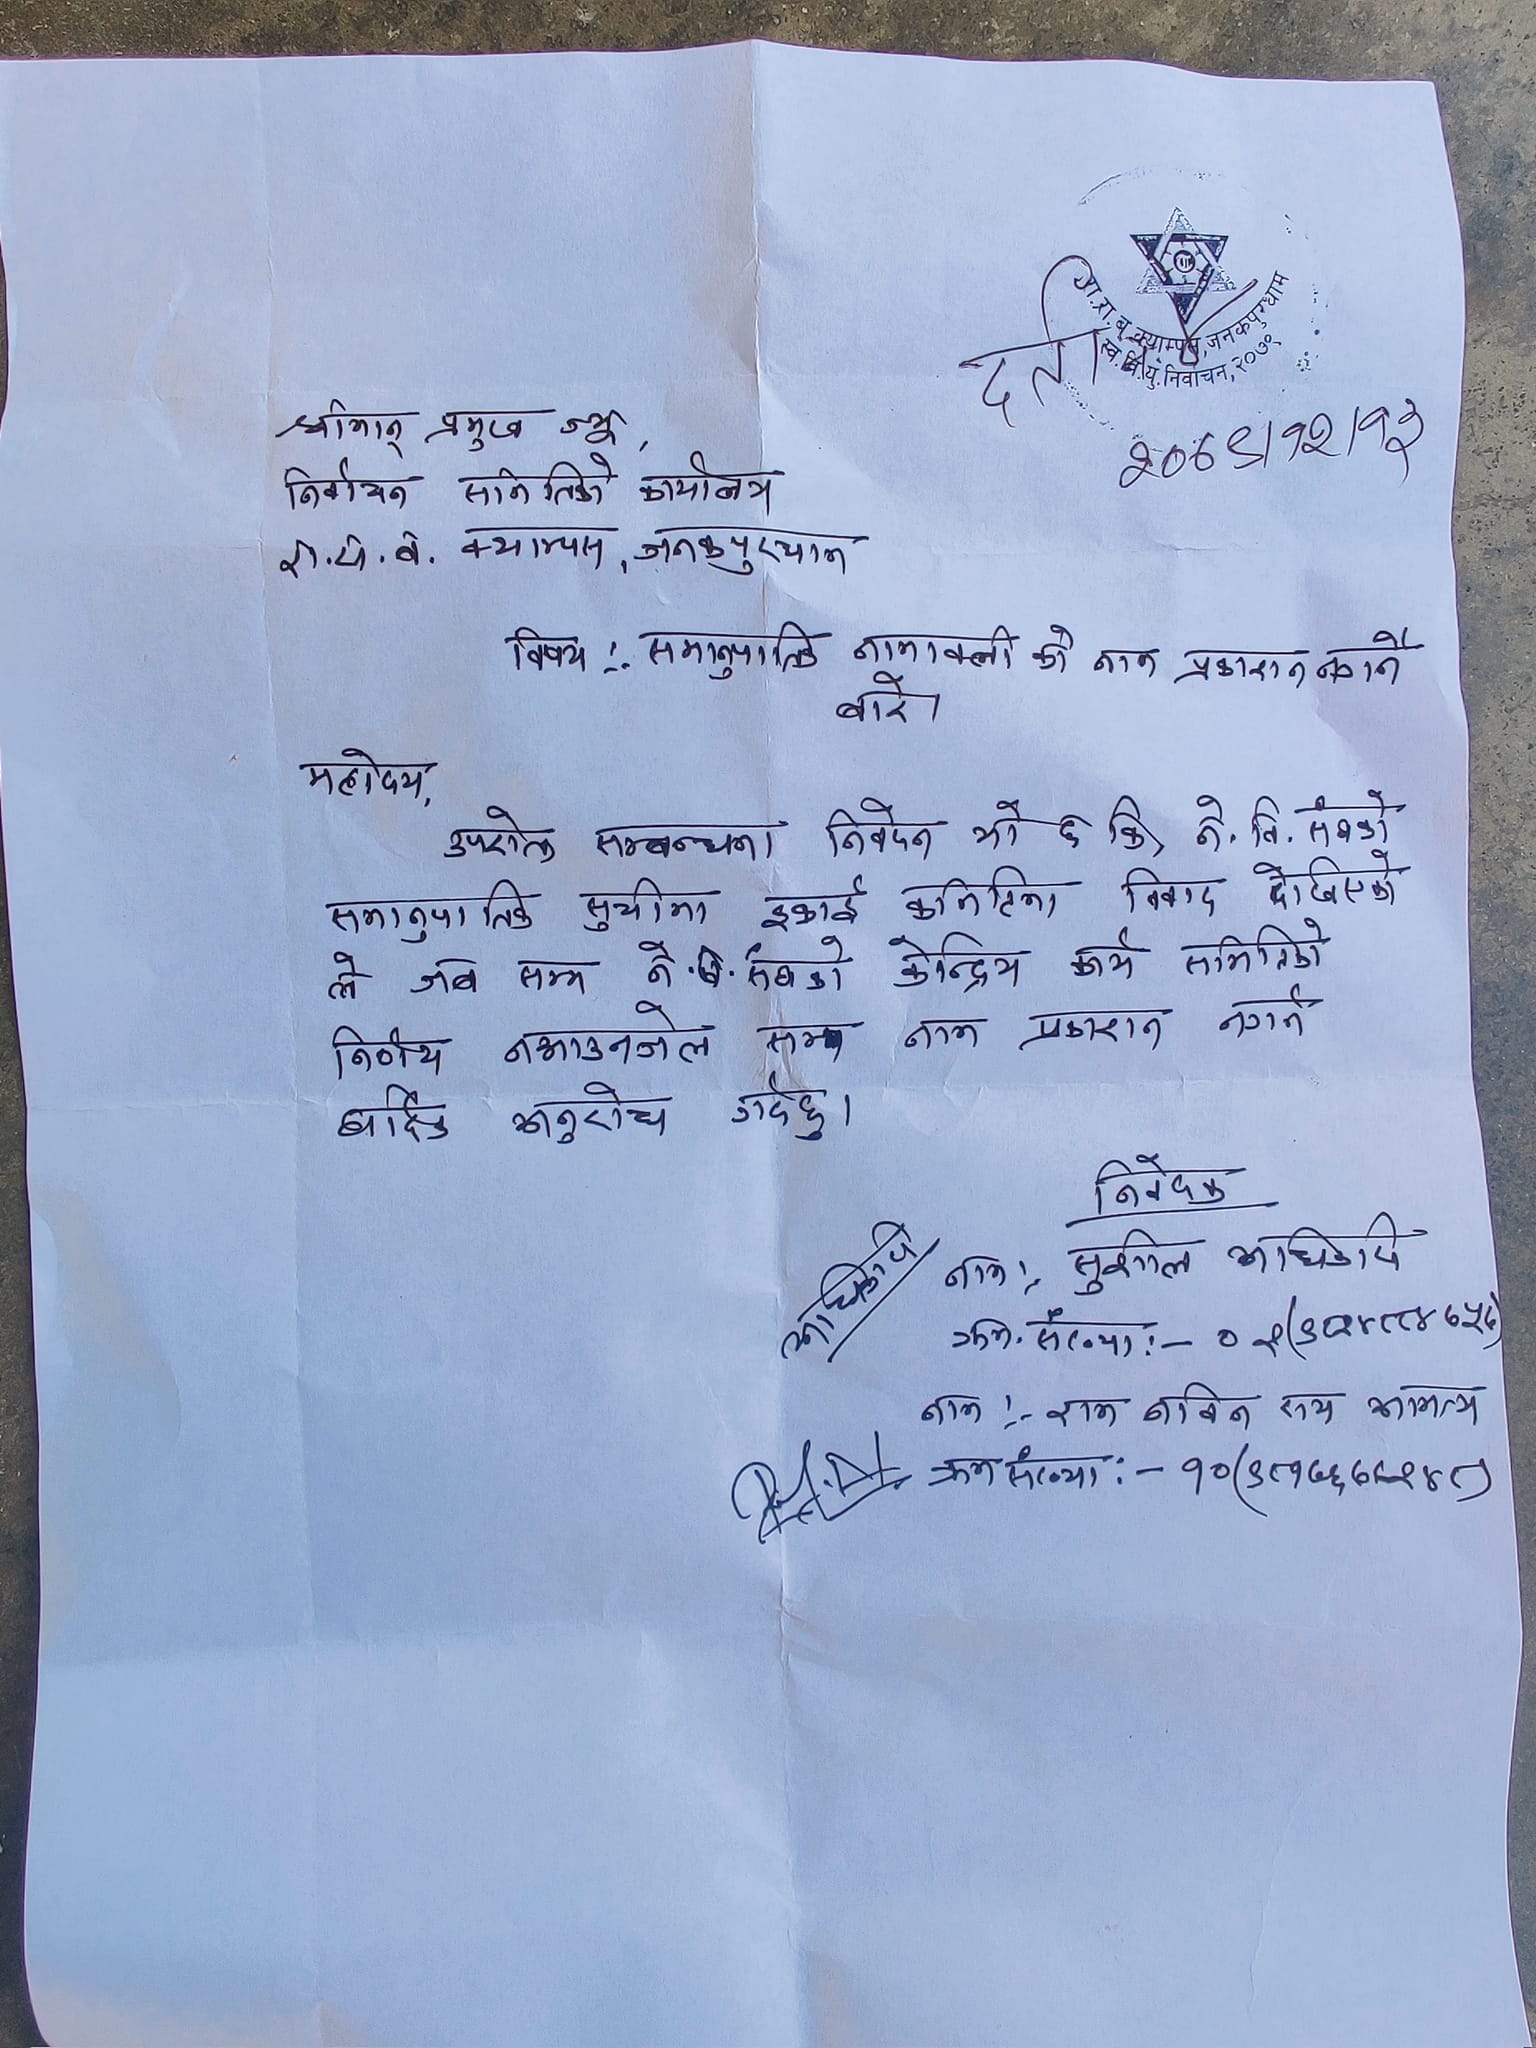 रा.रा.ब. क्याम्पस, जनकपुरधाम
स्व.वि.यु. निर्वाचन, २०७९
दर्ता
२०७९/१२/१३
श्रीमान् प्रमुख ज्यू,
निर्वाचन समितिको कार्यालय
रा.रा.ब. क्याम्पस, जनकपुरधाम
विषय :- समानुपातिक नामावली को नाम प्रकाशन नगर्ने
बारे।
महोदय,
उपरोक्त सम्बन्धमा निवेदन यो छ कि ने. वि. संघको
समानुपातिक सुचीमा इकाई कमिटिमा विवाद देखिएको
ले जब सम्म ने.वि. संघको केन्द्रिय कार्य समितिको
निर्णय नआउनजेल सम्म नाम प्रकाशन नगर्न
हार्दिक अनुरोध गर्दछु।
निवेदक
अधिकारी
नाम :- सुशील अधिकारी
क्रम. संख्या :- ०
नाम :- राम नविन राय अमात्य
क्रम संख्या :- १०